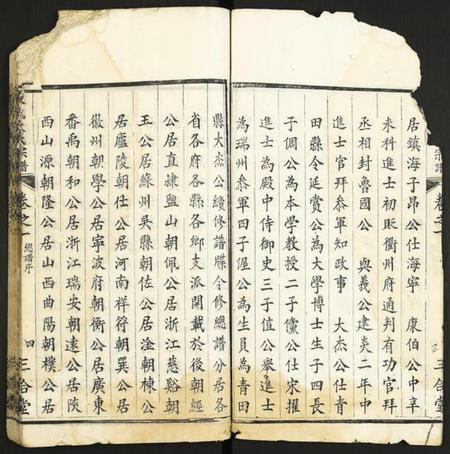 居鎮海子昂公仕海寧　康伯公中辛
未科進士初貶衢州府通判有功官拜
丞相封魯國公　與義公建炎二年中
進士官拜參軍知政事　大杰公仕青
田縣令延賞公為大學博士生子四長
子偘公為本學教授二子儻公仕宋擢
進士為殿中侍御史三子值公舉進士
為瑞州參軍四子偓公為生員為青田
縣大杰公續修譜牒今修總譜分居各
省各府各縣各鄉支派開載於後朝經
公居直隷盥山朝佩公居浙江慈谿朝
玉公居蘇州吳縣朝佐公居淦朝棟公
居廬陵朝仕公居河南祥符朝巽公居
徽州朝學公居寧波府朝衡公居廣東
番禹朝和公居浙江瑞安朝遠公居陝
西山源朝隆公居山西曲陽朝樸公居
宗譜
卷之一
三治堂
氏宗譜
卷之一
總譜序
四
三治堂